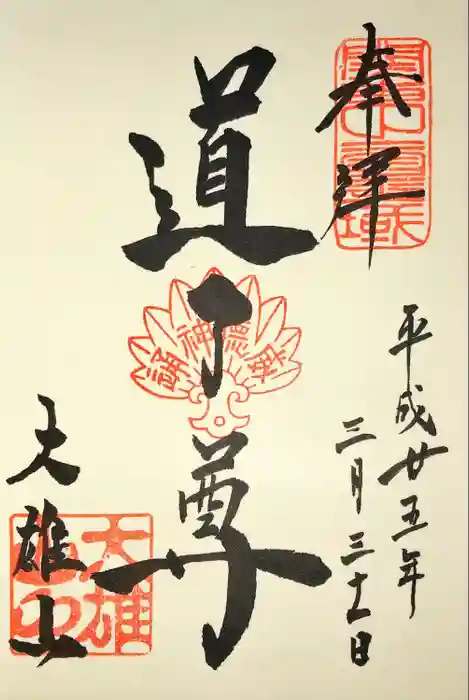 奉拝
平成廿五年
三月三十一日
道了尊
大雄山
大雄